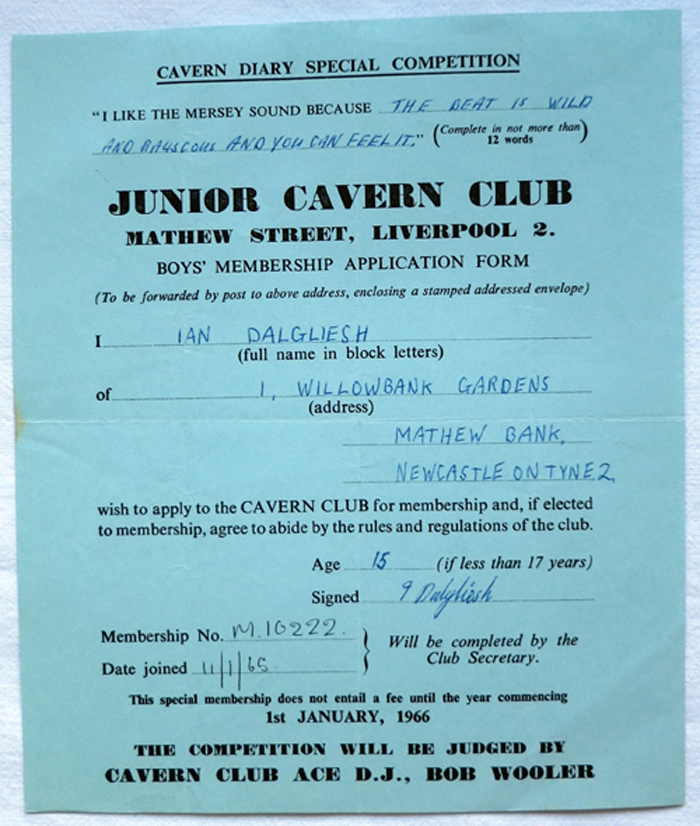 CAVERN DIARY SPECIAL COMPETITION
"I LIKE THE MERSEY SOUND BECAUSE THE BEAT IS WILD
AND RAUSCOUS AND YOU CAN FEEL IT." (Complete in not more than
12 words)
JUNIOR CAVERN CLUB
MATHEW STREET, LIVERPOOL 2.
BOYS' MEMBERSHIP APPLICATION FORM
(To be forwarded by post to above address, enclosing a stamped addressed envelope)
I IAN DALGLIESH
(full name in block letters)
of 1, WILLOWBANK GARDENS
(address)
MATHEW BANK,
NEWCASTLE ON TYNE 2,
wish to apply to the CAVERN CLUB for membership and, if elected
to membership, agree to abide by the rules and regulations of the club.
Age 15 (if less than 17 years)
Signed I Dalgliesh
Membership No. M.10222.
Date joined 11/1/65
Will be completed by the
Club Secretary.
This special membership does not entail a fee until the year commencing
1st JANUARY, 1966
THE COMPETITION WILL BE JUDGED BY
CAVERN CLUB ACE D.J., BOB WOOLER